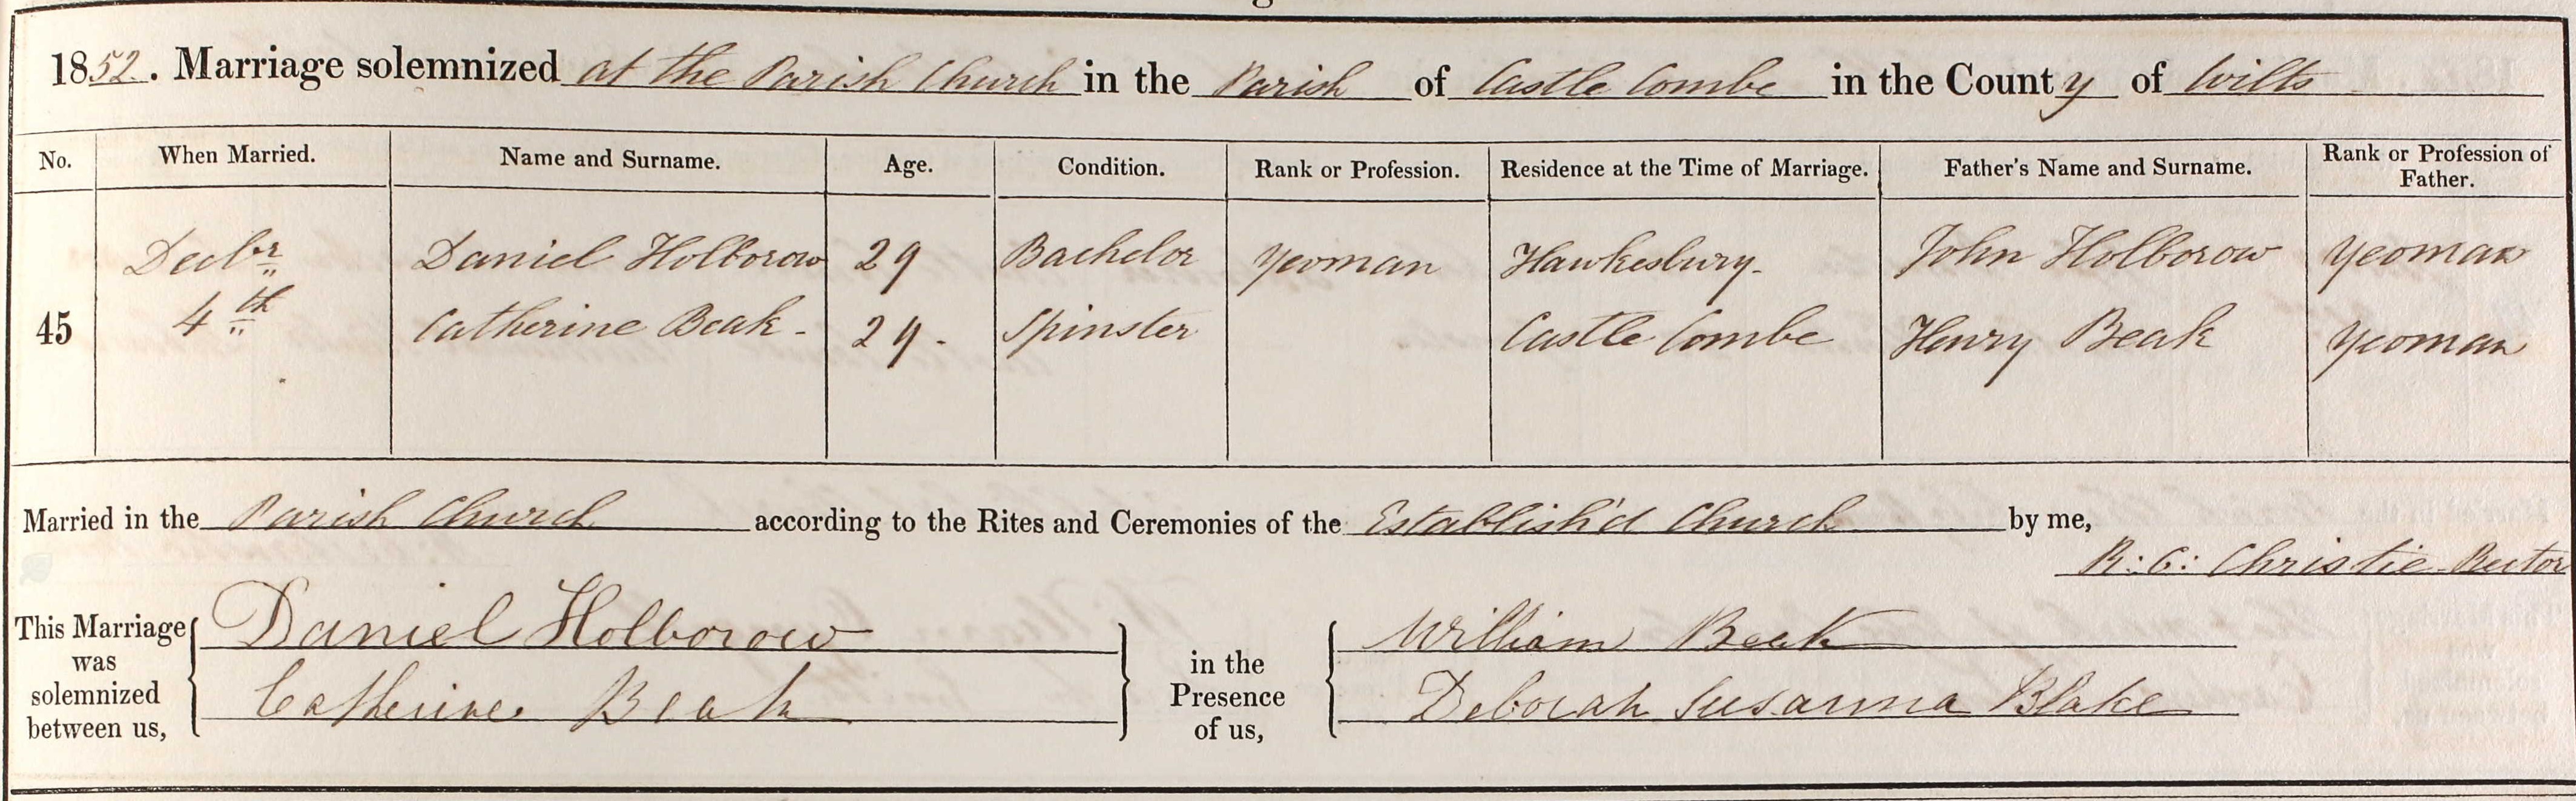 1852. Marriage solemnized at the Parish Church in the Parish of Castle Combe in the County of Wilts
No. When Married. Name and Surname. Age. Condition. Rank or Profession. Residence at the Time of Marriage. Father's Name and Surname. Rank or Profession of Father.
45
Decbr Daniel Holborow 29 Bachelor Yeoman Hawkesbury. John Holborow Yeoman
4th Catherine Beak - 29 - Spinster Castle Combe Henry Beak Yeoman
Married in the Parish Church according to the Rites and Ceremonies of the Establish'd Church by me,
R: C: Christie Rector
This Marriage was solemnized between us,
Daniel Holborow
Catherine Beak
in the Presence of us,
William Beak
Deborah Susanna Blake